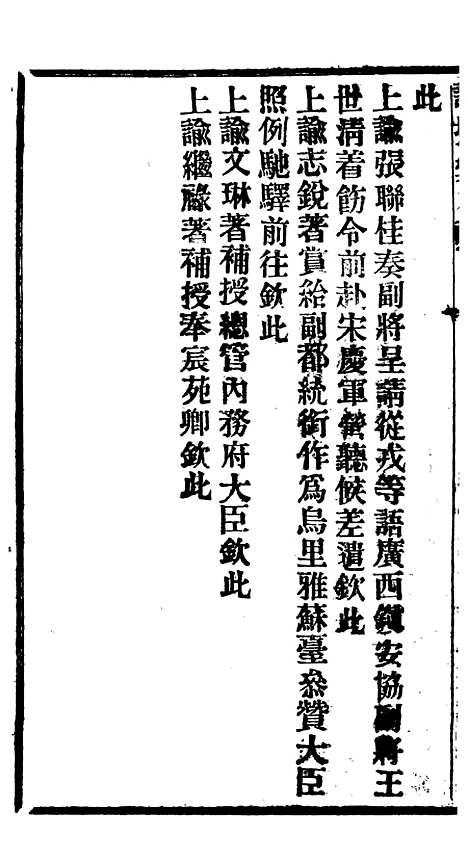 此
上諭張聯桂奏副將呈請從戎等語廣西鎮安協副將王
世清着飭令前赴宋慶軍營聽候差遣欽此
上諭志銳著賞給副都統銜作爲烏里雅蘇臺參贊大臣
照例馳驛前往欽此
上諭文琳著補授總管內務府大臣欽此
上諭繼祿著補授奉宸苑卿欽此